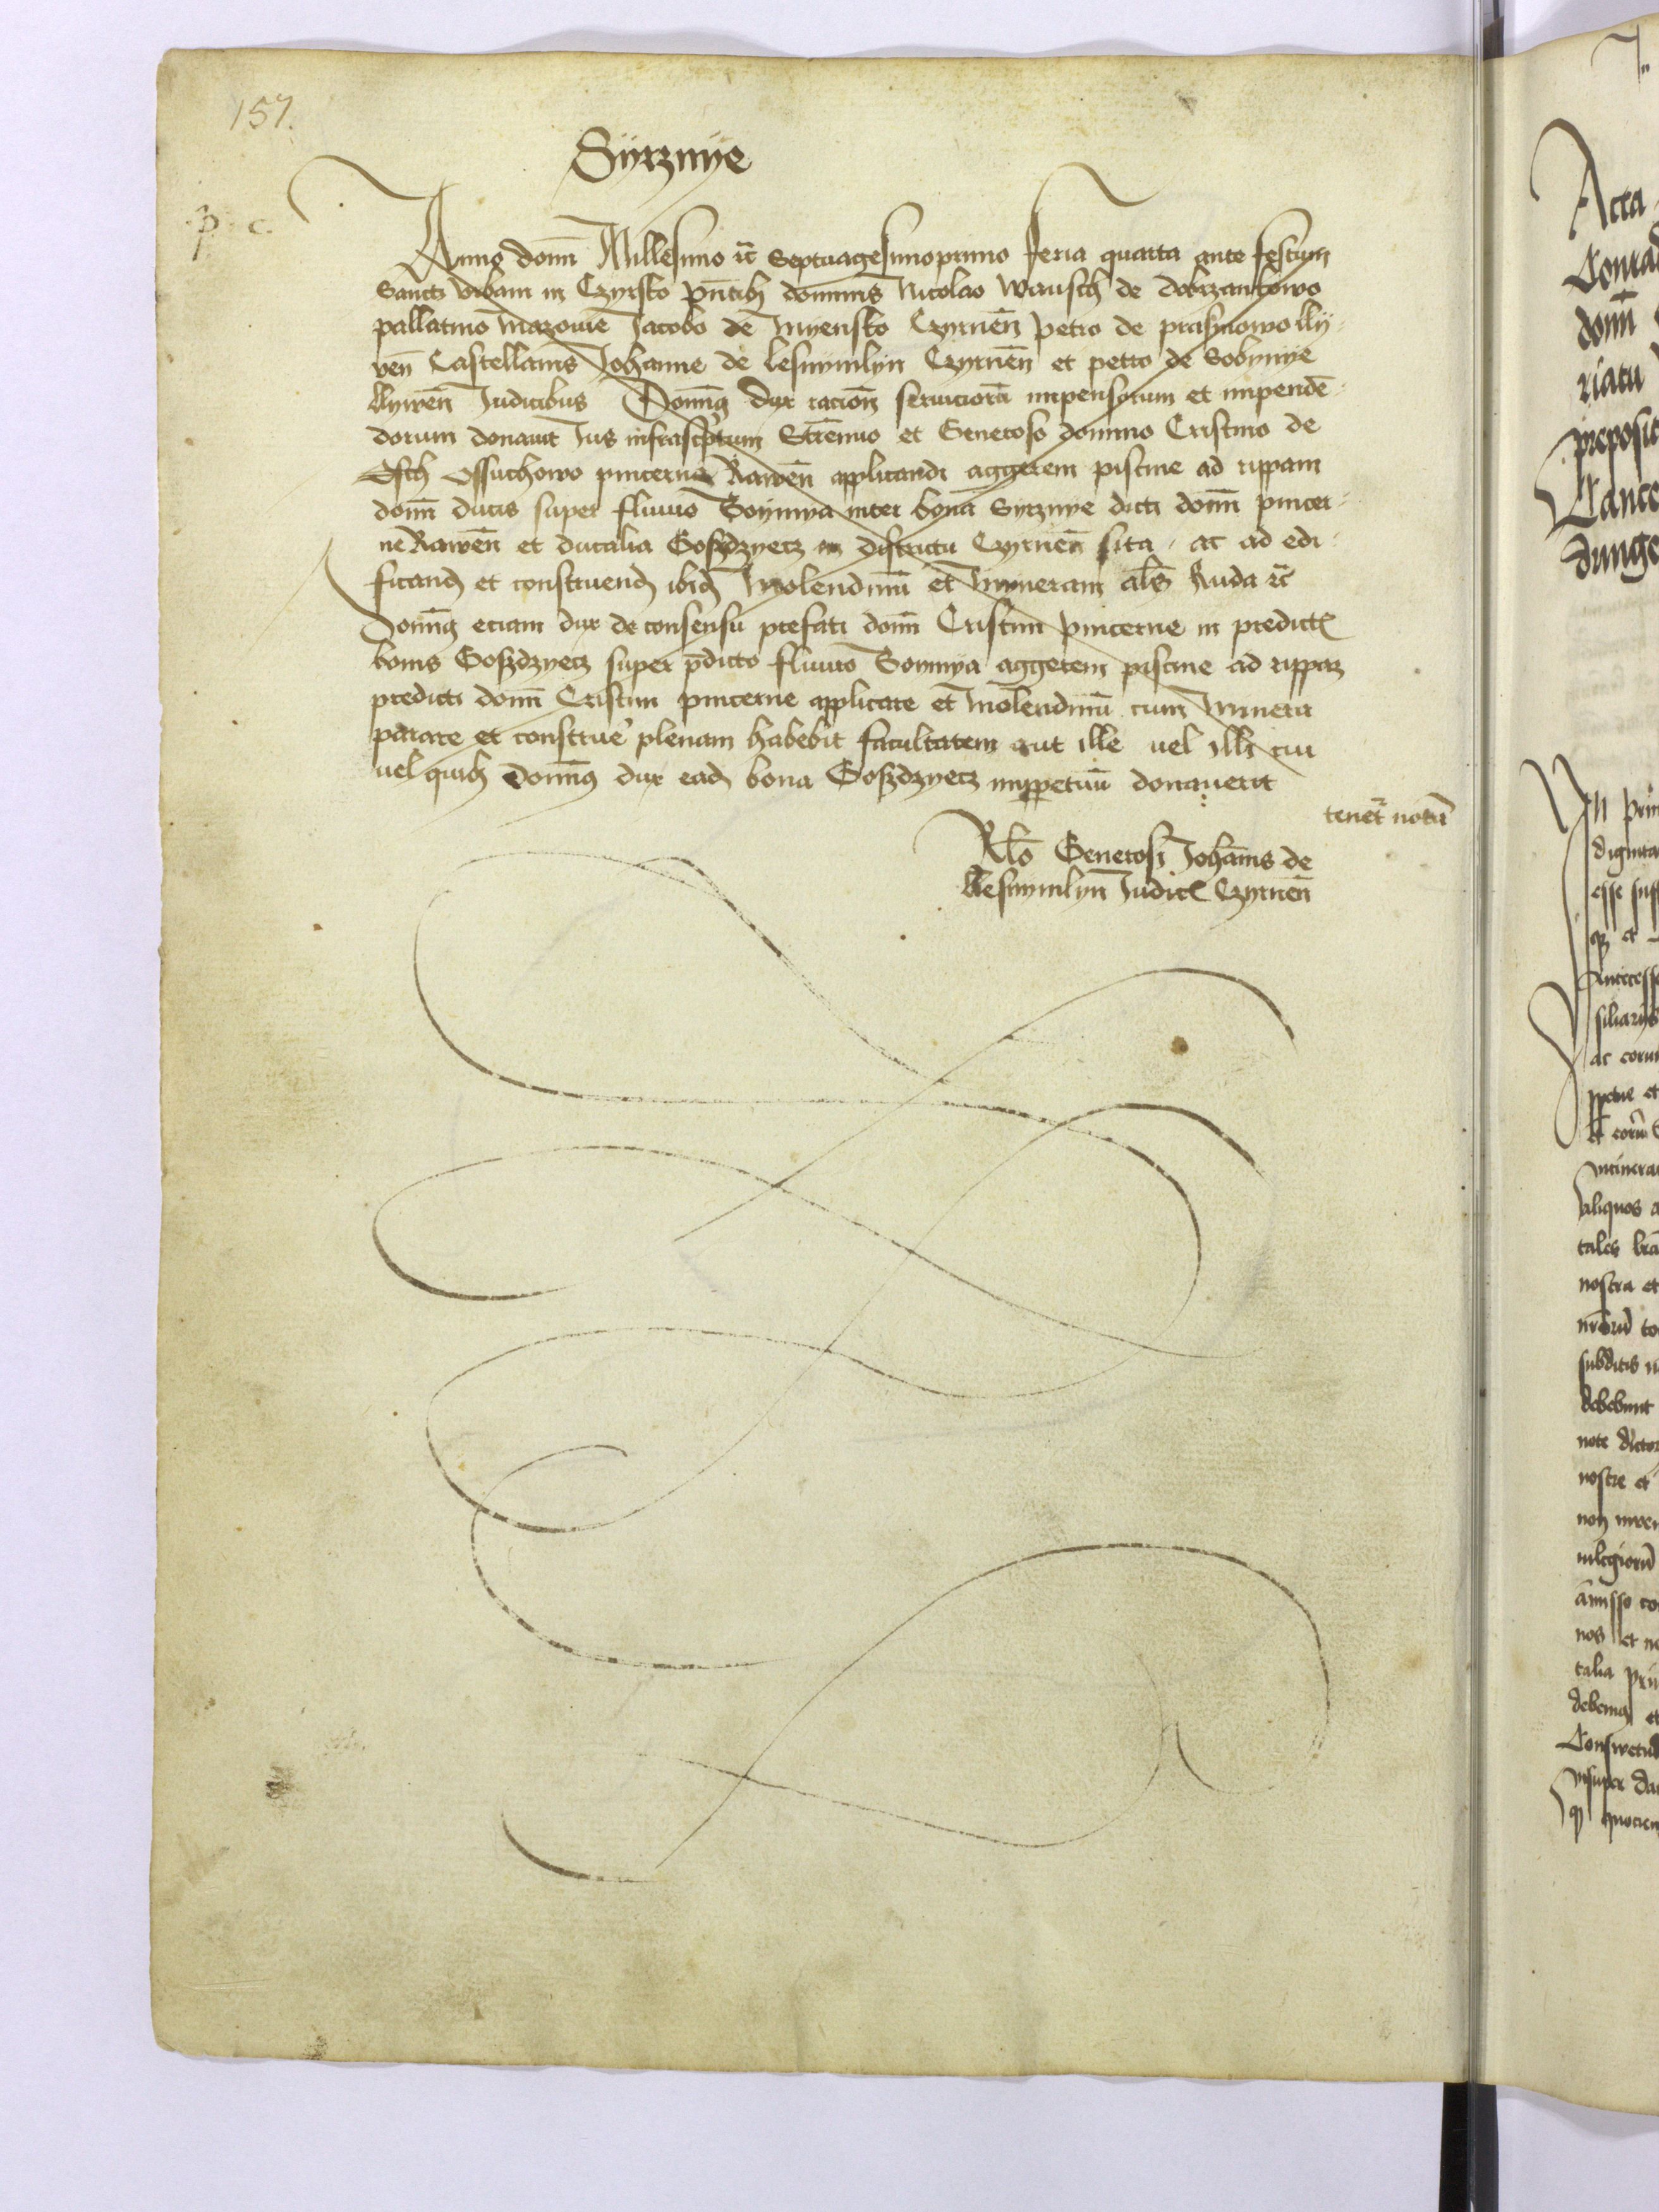 157.
Syrznye
p. c.
Anno domī Millesimo rc̄ Septuagesimoprimo feria quarta ante festum
Sancti Vrbani in Czyrsko pn̄tibꝫ dominis Nicolao Wansch de Dobrzankowo
pallatino Mazouie Jacobo de Myensko Czyrnen̄ Petro de prasmowo lly-
ven̄ Castellanis Johanne de lesnyMlyn Czyrnen̄ et petro de Sobynye
llywen̄ Judicibus Domīꝯ dux racion̄ seruicioꝝ impensorum et impendē-
dorum donauit Jus infrascrptum Strēnuo et Generoso domino Cristino de
Ossuchowo pincerne Rawen̄ applicandi aggerem piscine ad rippam
domī ducis super fluuio Soynya inter bona Syrznye dicti domī pincer-
ne Rawen̄ et ducalia Goszdzyecz in districtu Czyrnen̄ sita, ac ad edi-
ficand̄ et construend̄ ibid̄ Molendinū et Mineram al̄s Ruda rc̄
Domīꝯ eciam dux de consensu prefati domī Cristini pincerne in predict̄
bonis Goszdzyecz super p̄dicto fluuio Soynya aggerem piscine ad rippaꝫ
predicti domī Cristini pincerne applicare et Molendinū cum Minera
parare et construe' plenam habebit facultatem aut ille vel illi cui
uel quibꝫ Domīꝯ dux ead̄ bona Goszdzyecz inꝑpetuū donauerit
tenet̄ notā
Rl̄o Generosi Johan̄is de
llesnymlyn Judic̄ Czyrnen̄
Acta
domī
riatu
preposit
Cance
In prin
dignita
esse
et
Antecess
siliarys
ac coru
ꝑpetue et
et
aliquos a
tales
nostra et
nr̄orū to
subditis n
debebunt
note dicto
nostre et
non inven
uilegiorū
nos et n
talia
debemꝯ et
Consuetud
insuper da
quocien